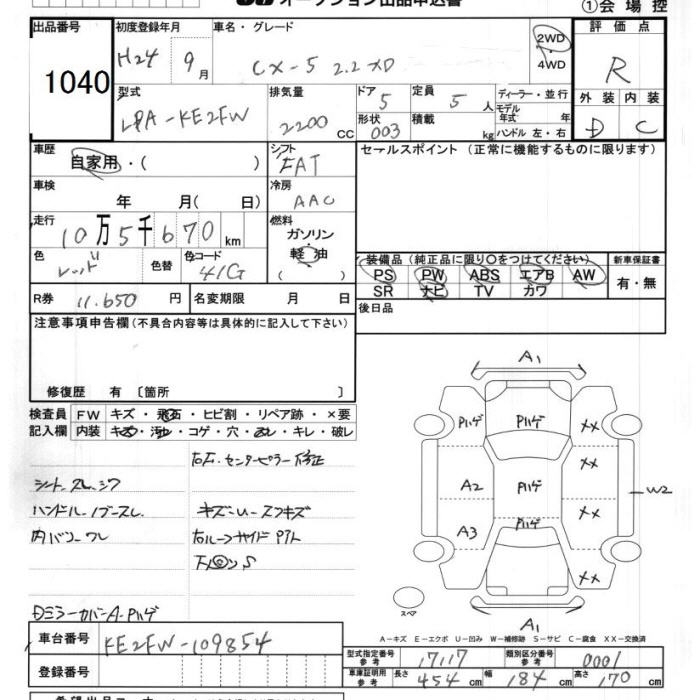 オークション出品申込書
①会場控
出品番号
1040
初度登録年月
H24 9月
車名・グレード
CX-5 2.2 XD
2WD
・4WD
評価点
R
型式
LDA-KE2FW
排気量
2200 CC
ドア 5
定員 5 人
ディーラー・並行
モデル年式 年
形状 003
積載 kg
ハンドル 左・右
外装 内装
D C
車歴
自家用・( )
シフト
FAT
セールスポイント (正常に機能するものに限ります)
車検
年 月( 日)
冷房
AAC
走行
10万5千670km
燃料
ガソリン
軽油
( )
色
レッド
色替
色コード
41G
装備品(純正品に限り○をつけてください)
新車保証書
PS PW ABS エアB AW
SR ナビ TV カワ
有・無
R券 11.650 円
名変期限 月 日
後日品
注意事項申告欄(不具合内容等は具体的に記入して下さい)
修復歴 有 〔箇所 〕
検査員記入欄
FW キズ・飛石・ヒビ割・リペア跡・×要
内装 キズ・汚れ・コゲ・穴・スレ・キレ・破レ
右F.センターピラー修正
シートスレ.シワ
ハンドル.ノブースレ
内バリ ワレ
キズ-U-スリキズ
D ミラーカバーA-Pハゲ
A1
Pハゲ Pハゲ ××
A2 Pハゲ ××
W2
A3 Pハゲ ××
××
スペア
A1
A-キズ E-エクボ U-凹み W-補修跡 S-サビ C-腐食 XX-交換済
車台番号
KE2FW-109854
登録番号
型式指定番号 参考 17117
類別区分番号 参考 0001
車庫証明用 参考 長さ 454 cm 幅 184 cm 高さ 170 cm